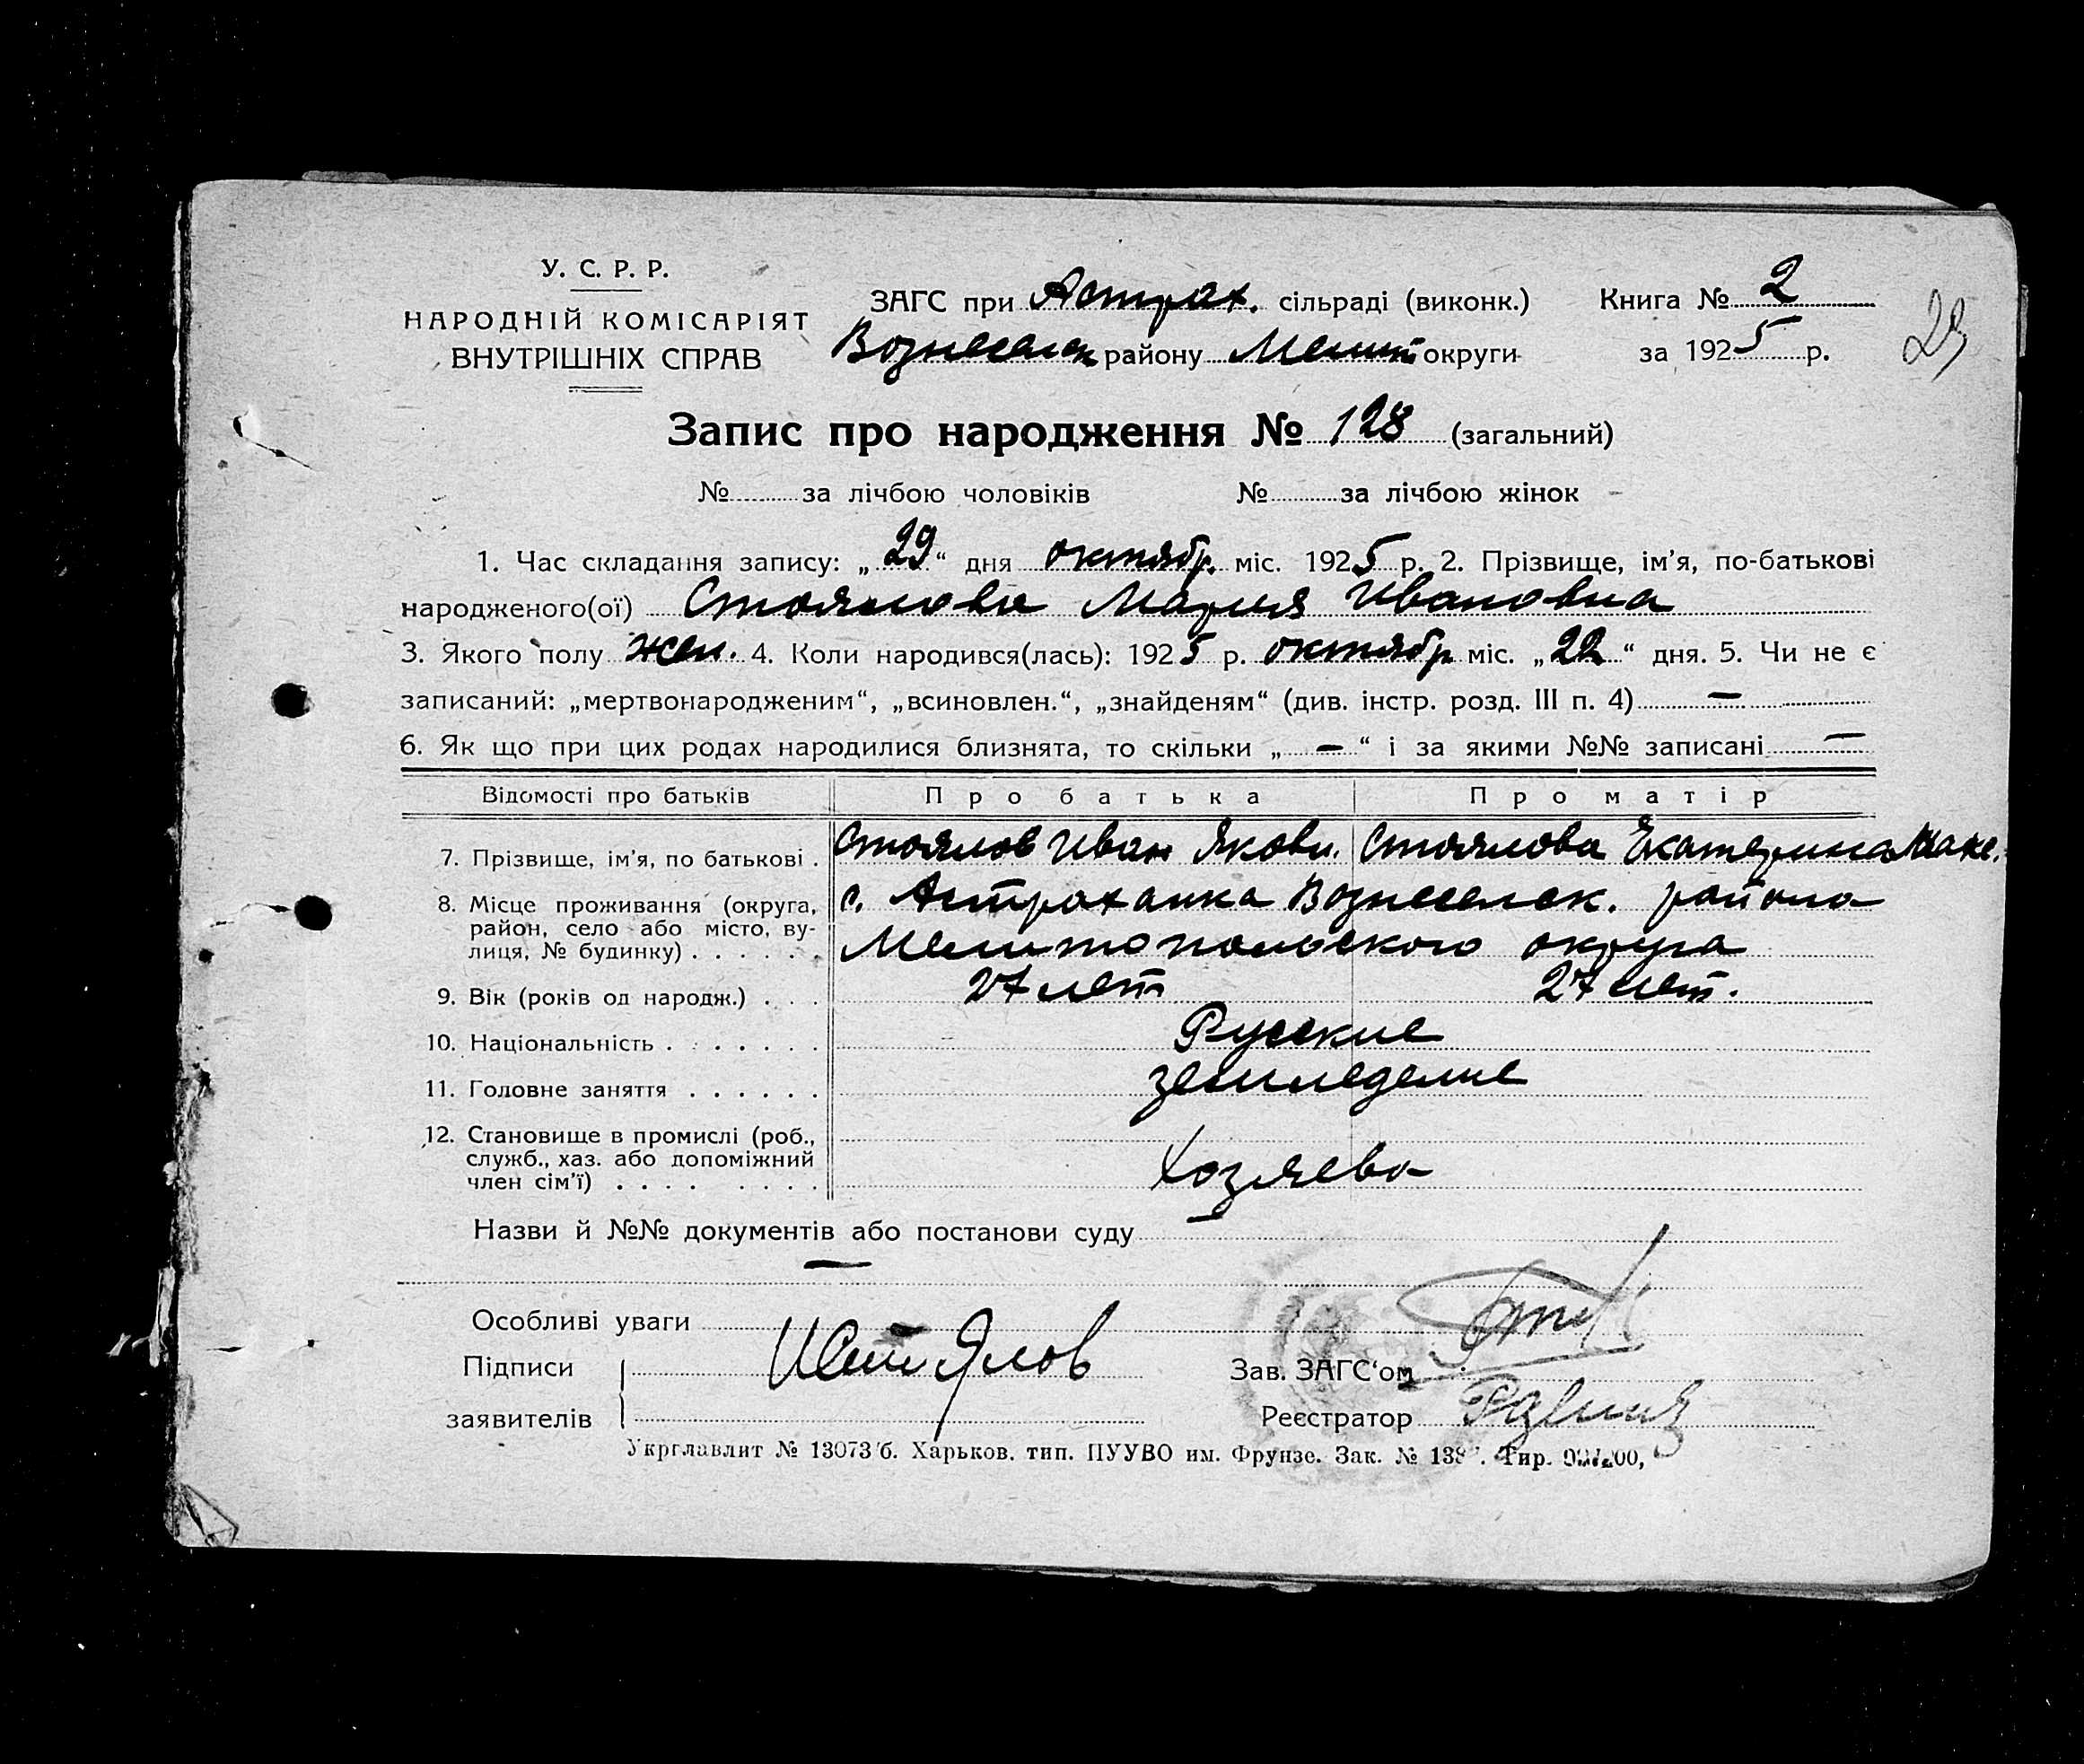 У. С. Р. Р.
НАРОДНІЙ КОМІСАРІЯТ
ВНУТРІШНІХ СПРАВ
ЗАГС при Астрах. сільраді (виконк.)
Вознесенск району Мелит округи
Книга № 2
за 1925 р.
29
Запис про народження № 128 (загальний)
№ за лічбою чоловіків № за лічбою жінок
1. Час складання запису: „29“ дня октябр. міс. 1925 р. 2. Прізвище, ім’я, по-батькові
народженого(ої) Стоялова Мария Ивановна
3. Якого полу жен. 4. Коли народився(лась): 1925 р. октябр міс. „22“ дня. 5. Чи не є
записаний: „мертвонародженим“, „всиновлен.“, „знайденям“ (див. інстр. розд. III п. 4) —
6. Як що при цих родах народилися близнята, то скільки „ — “ і за якими №№ записані —
Відомості про батьків Про батька Про матір
7. Прізвище, ім’я, по батькові . Стоялов Иван Яковл. Стоялова Екатерина
8. Місце проживання (округа, с. Астраханка Вознесенск. района
район, село або місто, ву-
лиця, № будинку) . . . . . . Мелитопольского округа
9. Вік (років од народж.) . . . 27 лет 27 лет.
10. Національність . . . . . . . Русские
11. Головне заняття . . . . . . земледелие
12. Становище в промислі (роб.,
служб., хаз. або допоміжний
член сім’ї) . . . . . . . . Хозяева
Назви й №№ документів або постанови суду —
—
Особливі уваги
Підписи
заявителів
ИСтоялов
Зав. ЗАГС‘ом
Реєстратор
Укрглавлит № 13073 б. Харьков. тип. ПУУВО им. Фрунзе. Зак. № Тир.